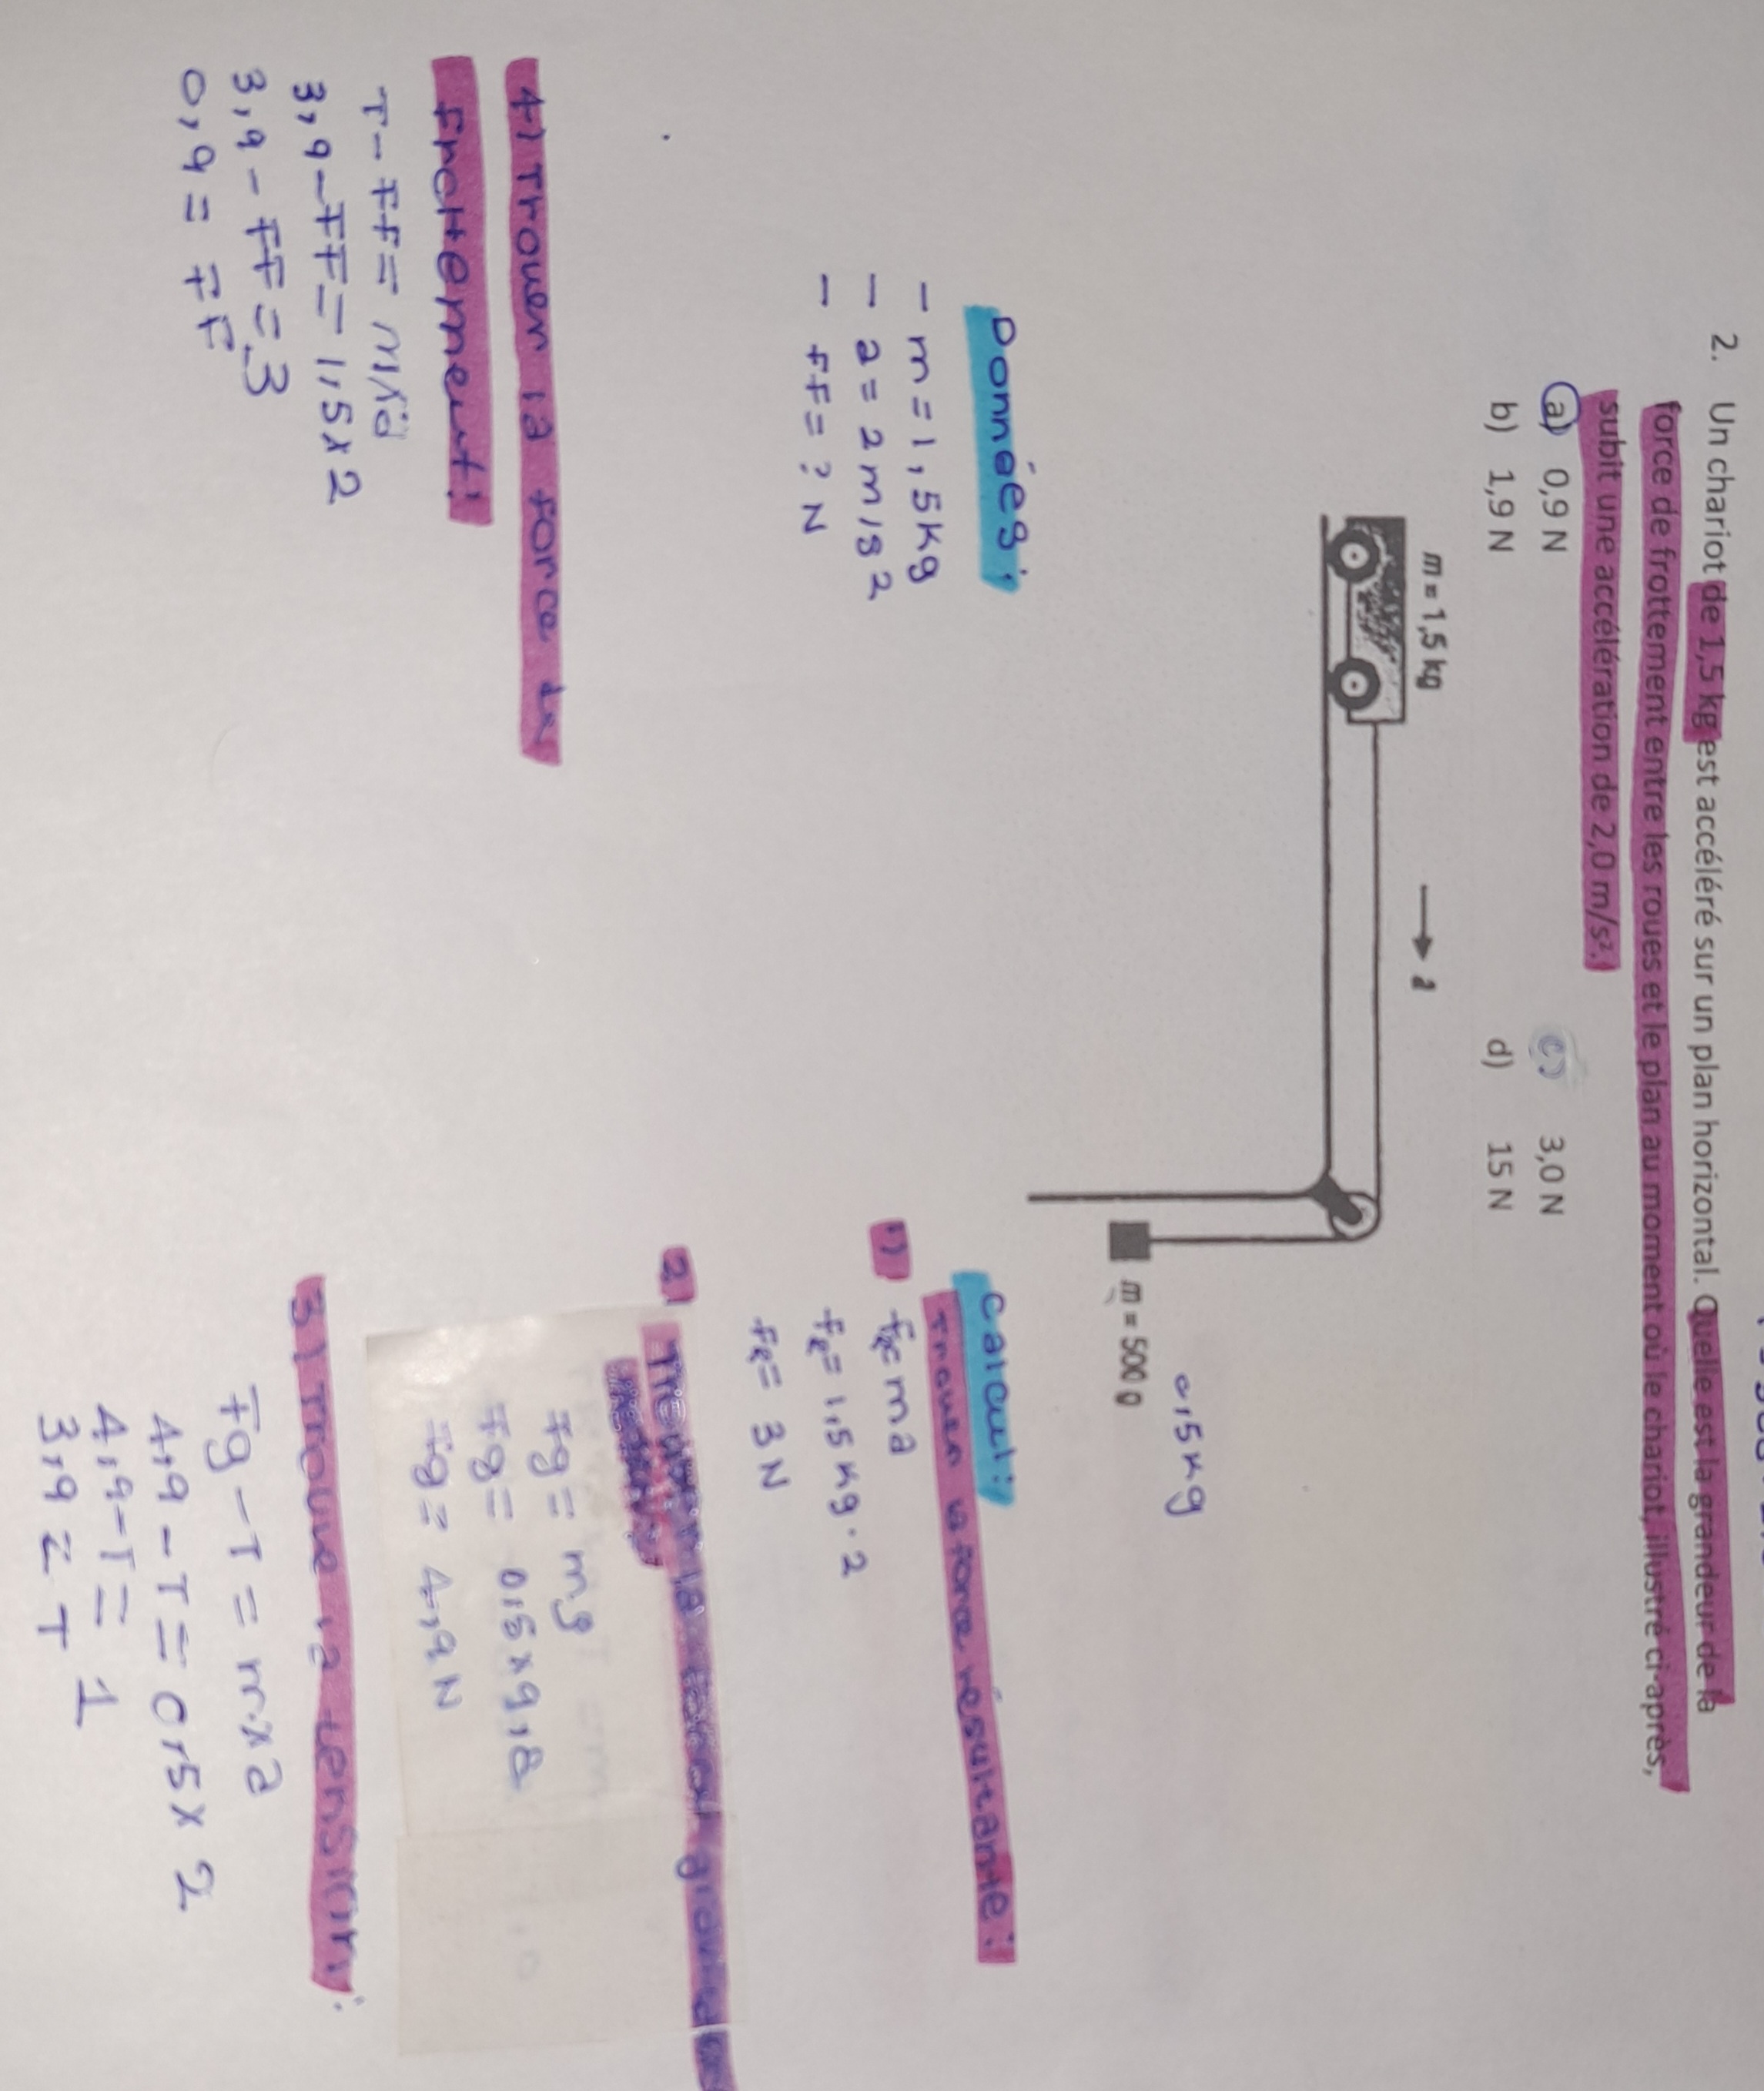 2. Un chariot de 1,5 kg est accéléré sur un plan horizontal. Quelle est la grandeur de la
force de frottement entre les roues et le plan au moment où le chariot, illustré ci-après,
subit une accélération de 2,0 m/s².
a) 0,9 N
c) 3,0 N
b) 1,9 N
d) 15 N
m = 1,5 kg
a
m = 500 g
0,5 kg
Données:
- m = 1,5 kg
- a = 2 m/s 2
- FF = ? N
Calcul:
1) Trouver la force résultante:
FR = ma
FR = 1,5 kg · 2
FR = 3 N
2) Trouver la
Fg = mg
Fg = 0,5 x 9,8
Fg = 4,9 N
3) Trouver la tension:
Fg - T = m x a
4,9 - T = 0,5 x 2
4,9 - T = 1
3,9 = T
4) Trouver la force de
frottement:
T - FF = m x a
3,9 - FF = 1,5 x 2
3,9 - FF = 3
0,9 = FF